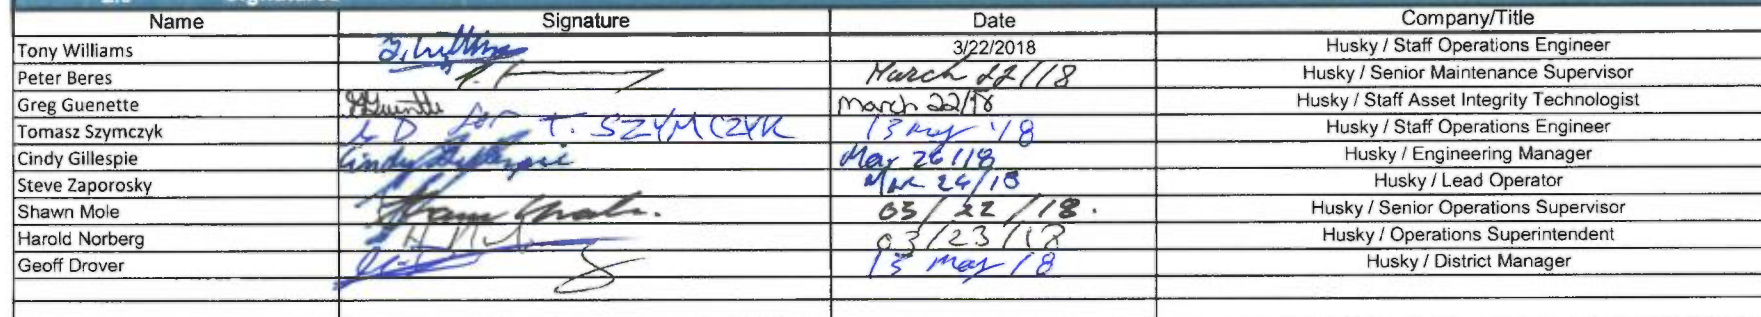 Name Signature Date Company/Title
Tony Williams T. Williams 3/22/2018 Husky / Staff Operations Engineer
Peter Beres March 22/18 Husky / Senior Maintenance Supervisor
Greg Guenette GGuenette March 22/18 Husky / Staff Asset Integrity Technologist
Tomasz Szymczyk for T. SZYMCZYK 13 May '18 Husky / Staff Operations Engineer
Cindy Gillespie Cindy Gillespie Mar 26/18 Husky / Engineering Manager
Steve Zaporosky Mar 26/18 Husky / Lead Operator
Shawn Mole 03/22/18. Husky / Senior Operations Supervisor
Harold Norberg 03/23/18 Husky / Operations Superintendent
Geoff Drover 13 May /18 Husky / District Manager